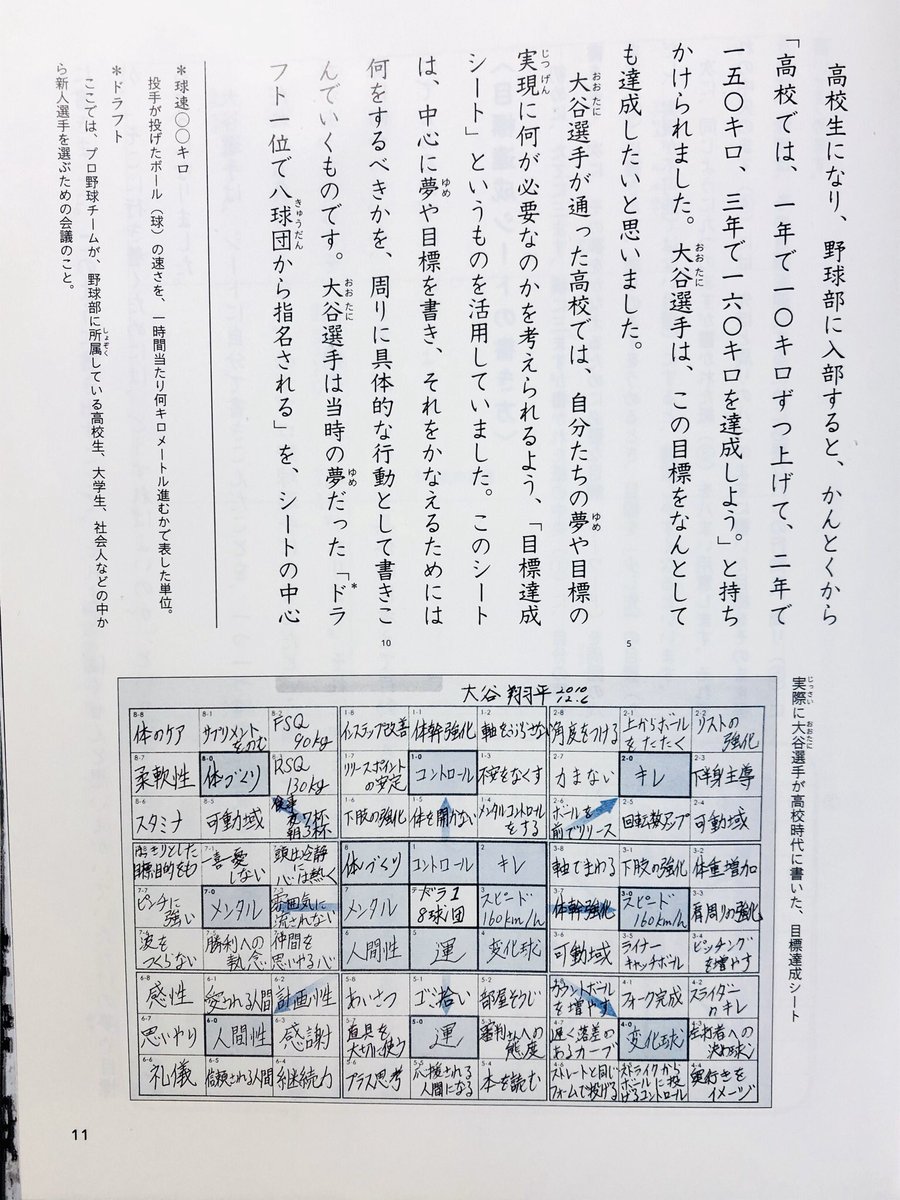 高校生になり、野球部に入部すると、かんとくから
「高校では、一年で一〇キロずつ上げて、二年で
一五〇キロ、三年で一六〇キロを達成しよう。」と持ち
かけられました。大谷選手は、この目標をなんとして
も達成したいと思いました。
大谷選手が通った高校では、自分たちの夢や目標の
実現に何が必要なのかを考えられるよう、「目標達成
シート」というものを活用していました。このシート
は、中心に夢や目標を書き、それをかなえるためには
何をするべきかを、周りに具体的な行動として書きこ
んでいくものです。大谷選手は当時の夢だった「*ドラ
フト一位で八球団から指名される」を、シートの中心
*球速〇〇キロ
投手が投げたボール(球)の速さを、一時間当たり何キロメートル進むかで表した単位。
*ドラフト
ここでは、プロ野球チームが、野球部に所属している高校生、大学生、社会人などの中か
ら新人選手を選ぶための会議のこと。
5
10
実際に大谷選手が高校時代に書いた、目標達成シート
大谷翔平 2010 12.6
体のケア サプリメントをのむ FSQ 90kg インステップ改善 体幹強化 軸をぶらさない 角度をつける 上からボールをたたく リストの強化
柔軟性 体づくり RSQ 130kg リリースポイントの安定 コントロール 不安をなくす 力まない キレ 下半身主導
スタミナ 可動域 食事 夜7杯 朝3杯 下肢の強化 体を開かない メンタルコントロールをする ボールを前でリリース 回転数アップ 可動域
はっきりとした目標目的をもつ 一喜一憂しない 頭は冷静に心は熱く 体づくり コントロール キレ 軸でまわる 下肢の強化 体重増加
ピンチに強い メンタル 雰囲気に流されない メンタル ドラ1 8球団 スピード 160km/h 体幹強化 スピード 160km/h 肩周りの強化
波をつくらない 勝利への執念 仲間を思いやる心 人間性 運 変化球 可動域 ライナーキャッチボール ピッチングを増やす
感性 愛される人間 計画性 あいさつ ゴミ拾い 部屋そうじ カウントボールを増やす フォーク完成 スライダーのキレ
思いやり 人間性 感謝 道具を大切に使う 運 審判さんへの態度 遅く落差のあるカーブ 変化球 左打者への決め球
礼儀 信頼される人間 継続力 プラス思考 応援される人間になる 本を読む ストレートと同じフォームで投げる ストライクからボールに投げるコントロール 奥行きをイメージ
11